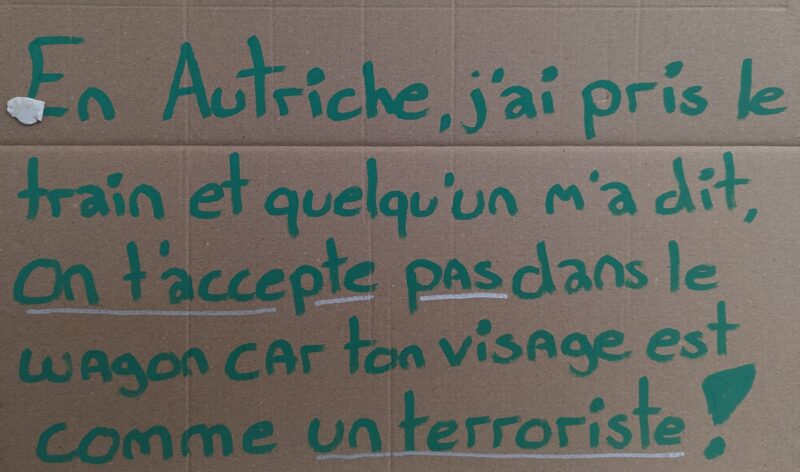 En Autriche, j'ai pris le
train et quelqu'un m'a dit,
on t'accepte pas dans le
wagon car ton visage est
comme un terroriste!